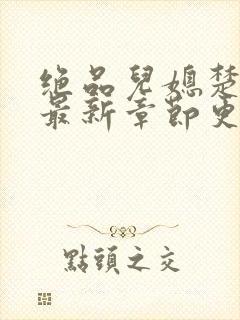 绝品兒媳楚
最新章節史
點頭之交